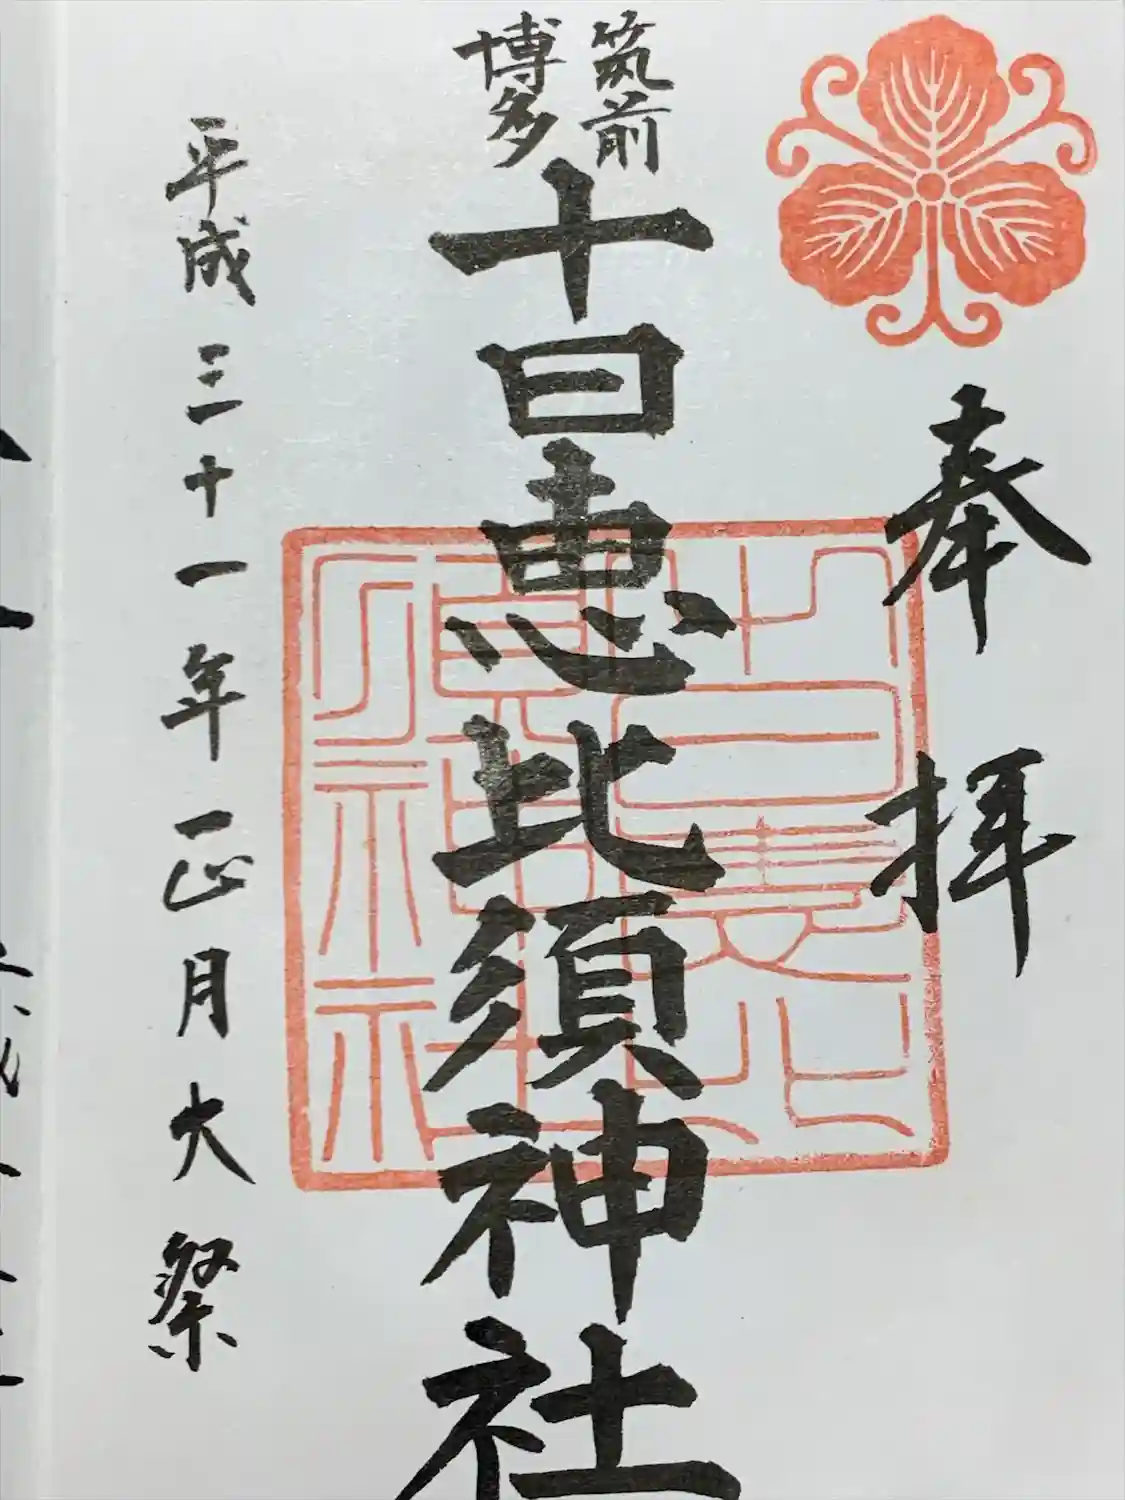 奉拝
筑前
博多
十日恵比須神社
平成三十一年正月大祭